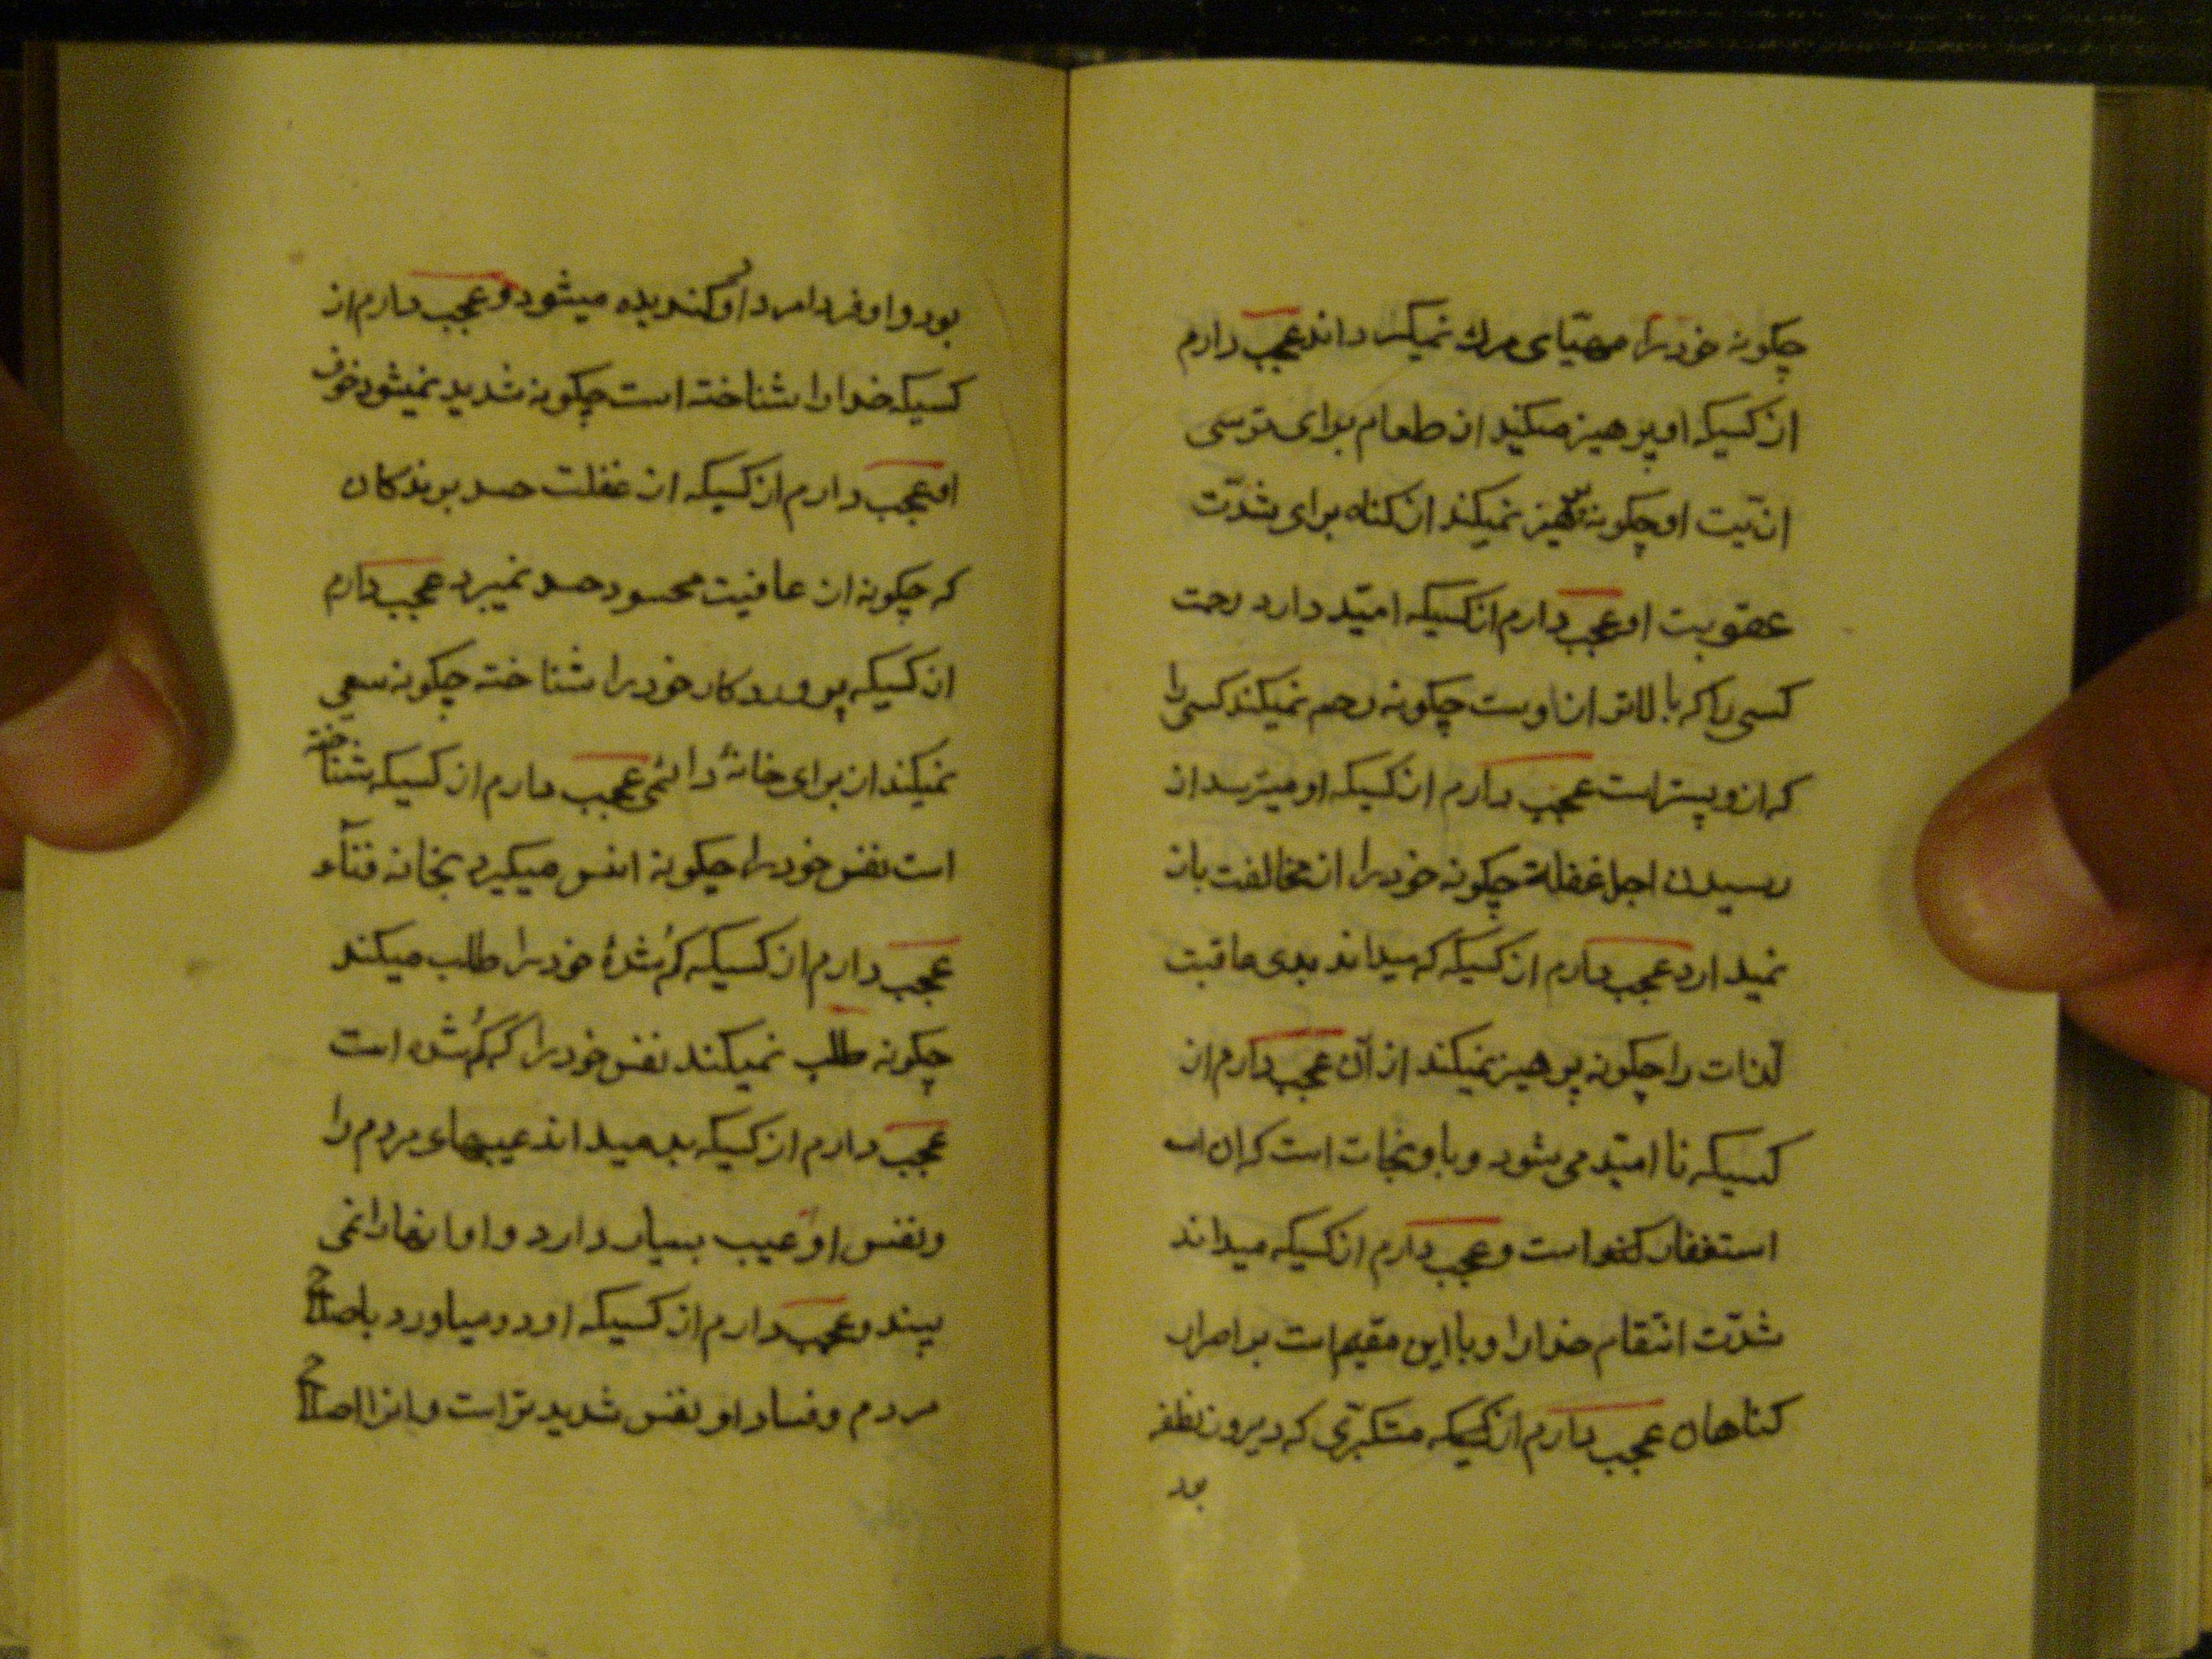 چکونه خود را مهیّای مرك نمیکرداند عجب دارم
از کسیکه او پرهیز میکند از طعام برای ترسی
اذیّت او چکونه پرهیز نمیکند از کناه برای شدّت
عقوبت او عجب دارم از کسیکه امیّد دارد رحمت
کسی را که بالاتر از اوست چکونه رحم نمیکند کسی را
که از و پستراست عجب دارم از کسیکه او میترسد از
رسیدن اجل غفلة چکونه خود را از مخالفت باز
نمیدارد عجب دارم از کسیکه که میداند بدی عاقبت
لذات را چکونه پرهیز نمیکند از آن عجب دارم از
کسیکه نا امیّد می شود و با و نجات است که ان
استغفار است و عجب دارم از کسیکه میداند
شدّت انتقام خدا را و با این مقیم است بر اصرار
کناهان عجب دارم از کسیکه متکبّری که دیروز نطفه
بود
بود و او فردا مرد او کندیده میشود و عجب دارم از
کسیکه خدا را شناخته است چکونه شدید نمیشود خوف
او عجب دارم از کسیکه از غفلت حسد برندکان
که چکونه از عافیت محسود حسد نمیبرد عجب دارم
از کسیکه پروردکار خود را شناخته چکونه سعی
نمیکند از برای خانهٔ دائمی عجب دارم از کسیکه شناخته
است نفس خود را چکونه انس میکیرد بخانه فنآء
عجب دارم از کسیکه کم شدهٔ خود را طلب میکند
چکونه طلب نمیکند نفس خود را که کم شده است
عجب دارم از کسیکه بد میداند عیبهای مردم را
و نفس او عیب بسیار دارد و اما نهارا نمی
بیند و عجب دارم از کسیکه او در میاورد باصلاح
مردم و فساد او نفس شدید تراست و انرا اصلاح